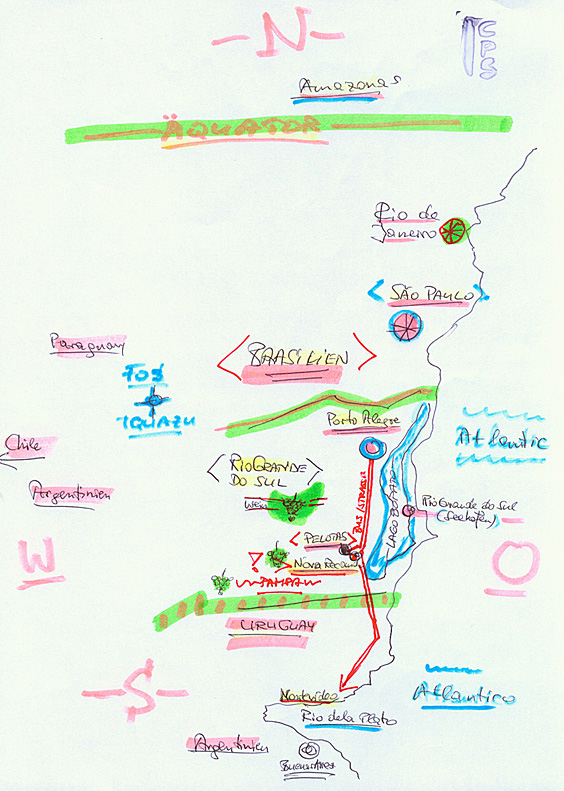 - N -
CPS
Amazonas
ÄQUATOR
Rio de
Janeiro
SÃO PAULO
Paraguay
BRASILIEN
FOS
IQUAZU
Porto Alegre
Atlantic
Chile
RIO GRANDE
DO SUL
Argentinien
WEIN
LAGO DO PATO
Rio Grande do Sul
(Seehafen)
PELOTAS
W
O
!
NOVA RECON
PAMPA
URUGUAY
- S -
Montevideo
Atlantico
Rio de la Plata
Argentinien
Buenos Aires